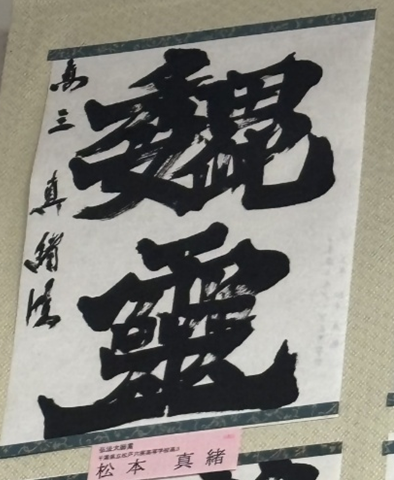 魏靈
高三 真緒臨
弘法大師賞
千葉県立松戸六実高等学校高3
松本 真緒